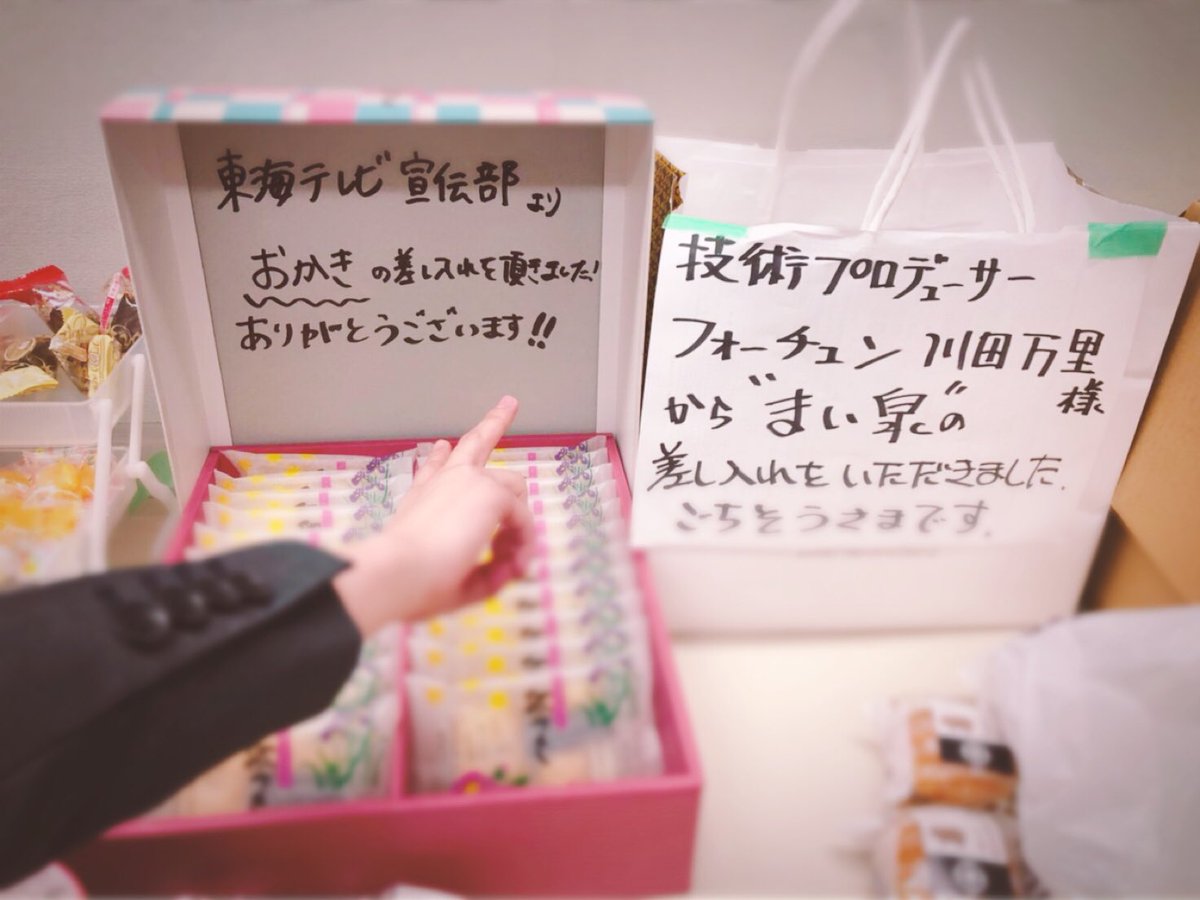 東海テレビ宣伝部より
おかきの差し入れを頂きました!
ありがとうございます!!
技術プロデューサー
フォーチュン 川田万里様
から"まい泉"の
差し入れをいただきました.
ごちそうさまです.